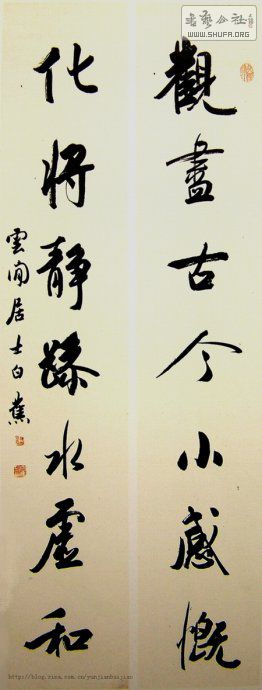 書藝公社
WWW.SHUFA.ORG
觀盡古今小感慨
化將靜躁水虛和
雲間居士白蕉
http://blog.sina.com.cn/yunjianbaijiao